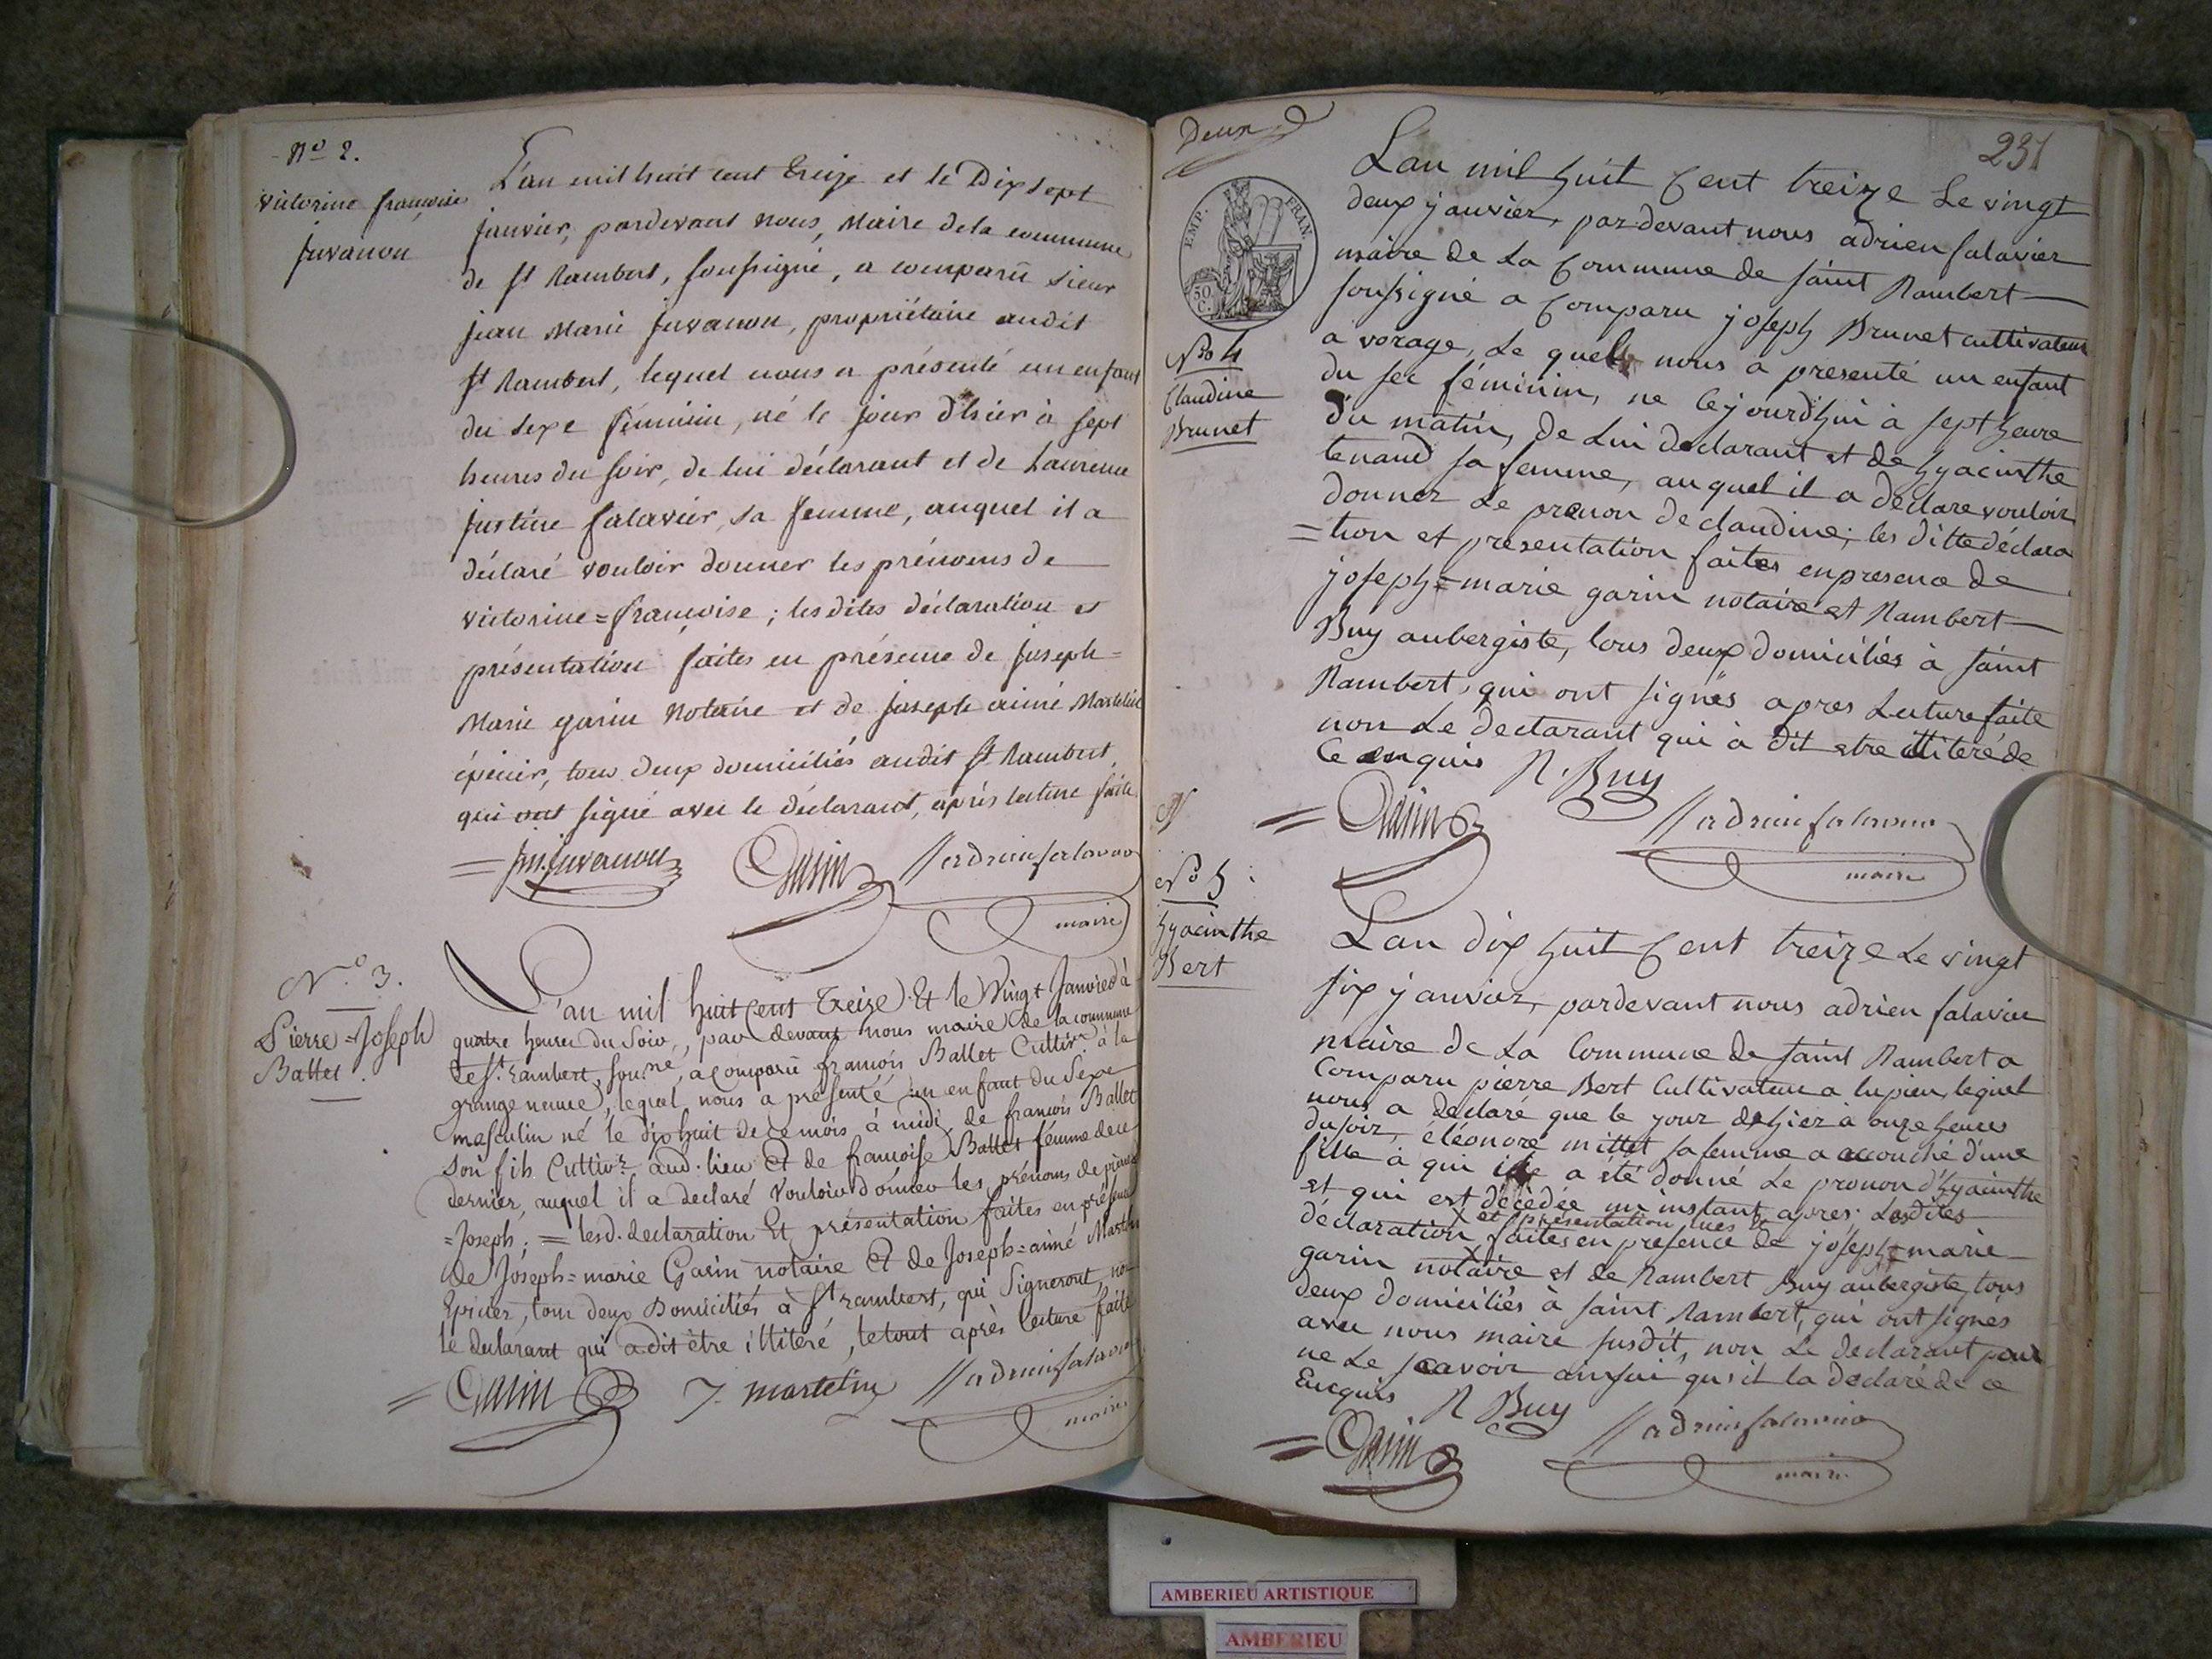 N° 2.
victorine françoise
Juvanon
L'an mil huit cent treize et le Dix sept
janvier, pardevant nous, Maire dela commune
de St Rambert, soussigné, a comparû sieur
jean Marie Juvanon, propriétaire audit
St Rambert, lequel nous a présenté un enfant
du sexe féminin, né le jour d'hier à sept
heures du soir, de lui déclarant et de Laurence
justine Salavier, sa femme, auquel il a
déclaré vouloir donner les prénoms de
victorine=françoise; les dites déclaration et
présentation faites en présence de Joseph=
Marie garin Notaire et de joseph aimé Martelin
épicier, tous deux domiciliés audit St Rambert,
qui ont signé avec le déclarant, après lecture faite
= jm. juvanon Garin // adrien salavier
maire
N.° 3.
Pierre=Joseph
Ballet.
L'an mil huit cent treize Et le Vingt Janvier à
quatre heures du Soir, par devant nous maire de la commune
de St. rambert, sou.né, a comparû françois Ballet Cultivr à la
grange neuve, lequel nous a présenté un enfant du Sexe
masculin né le dix huit de ce mois à midi, de françois Ballet
son fils Cultivr. aud. lieu Et de françoise Ballet femme de ce
dernier, auquel il a declaré vouloir donner les prénoms de pierre
=Joseph; = lesd. declaration Et présentation faites en présence
de Joseph=marie Garin notaire Et de Joseph=aimé Martelin
Epicier, tous deux Domiciliés à St rambert, qui Signeront, non
le declarant qui a dit être illiteré, le tout après lecture faite
= Garin J. martelin // adrien salavier
maire
Deux
231
EMP. FRAN.
50 C.
No 4
Claudine
Brunet
L'an mil huit Cent treize Le vingt
deux janvier, par devant nous adrien salavier
maire de La Commune de saint Rambert
soussigné a Comparu joseph Brunet cultivateur
a vorage, Le quel nous a presenté un enfant
du sec féminin, ne cejourd'hui à sept heure
du matin, de Lui declarant et de hyacinthe
tenand sa femme, auquel il a déclaré vouloir
donner Le prenon de claudine; les ditte déclara
=tion et présentation faites en presence de
joseph=marie garin notaire et Rambert
Buy aubergiste, tous deux domiciliés à saint
Rambert, qui ont signés apres Lecture faite
non Le declarant qui à dit etre illiteré de
Ce enquis R. Buy
= Garin // adrien salavier
maire
N
No 5
hyacinthe
Bert
L'an dix huit Cent treize Le vingt
six janvier, pardevant nous adrien salavier
maire de La Commune de saint Rambert a
Comparu pierre Bert Cultivateur a lupieu, lequel
nous a declaré que le jour dehier à onze heures
du soir, éléonore mittet sa femme a accouché d'une
fille à qui il a été donné Le prenon d'hyacinthe
et qui est décèdée un instant apres; Lesdites
et présentation
déclaration faites en presence de joseph=marie
garin notaire et de Rambert Buy aubergiste, tous
deux domiciliés à saint Rambert, qui ont signés
avec nous maire susdit, non Le declarant pour
ne Le scavoir ainsui qu'il la declaré de ce
Enquis R Buy
= Garin // adrien salavier
maire
AMBERIEU ARTISTIQUE
AMBERIEU